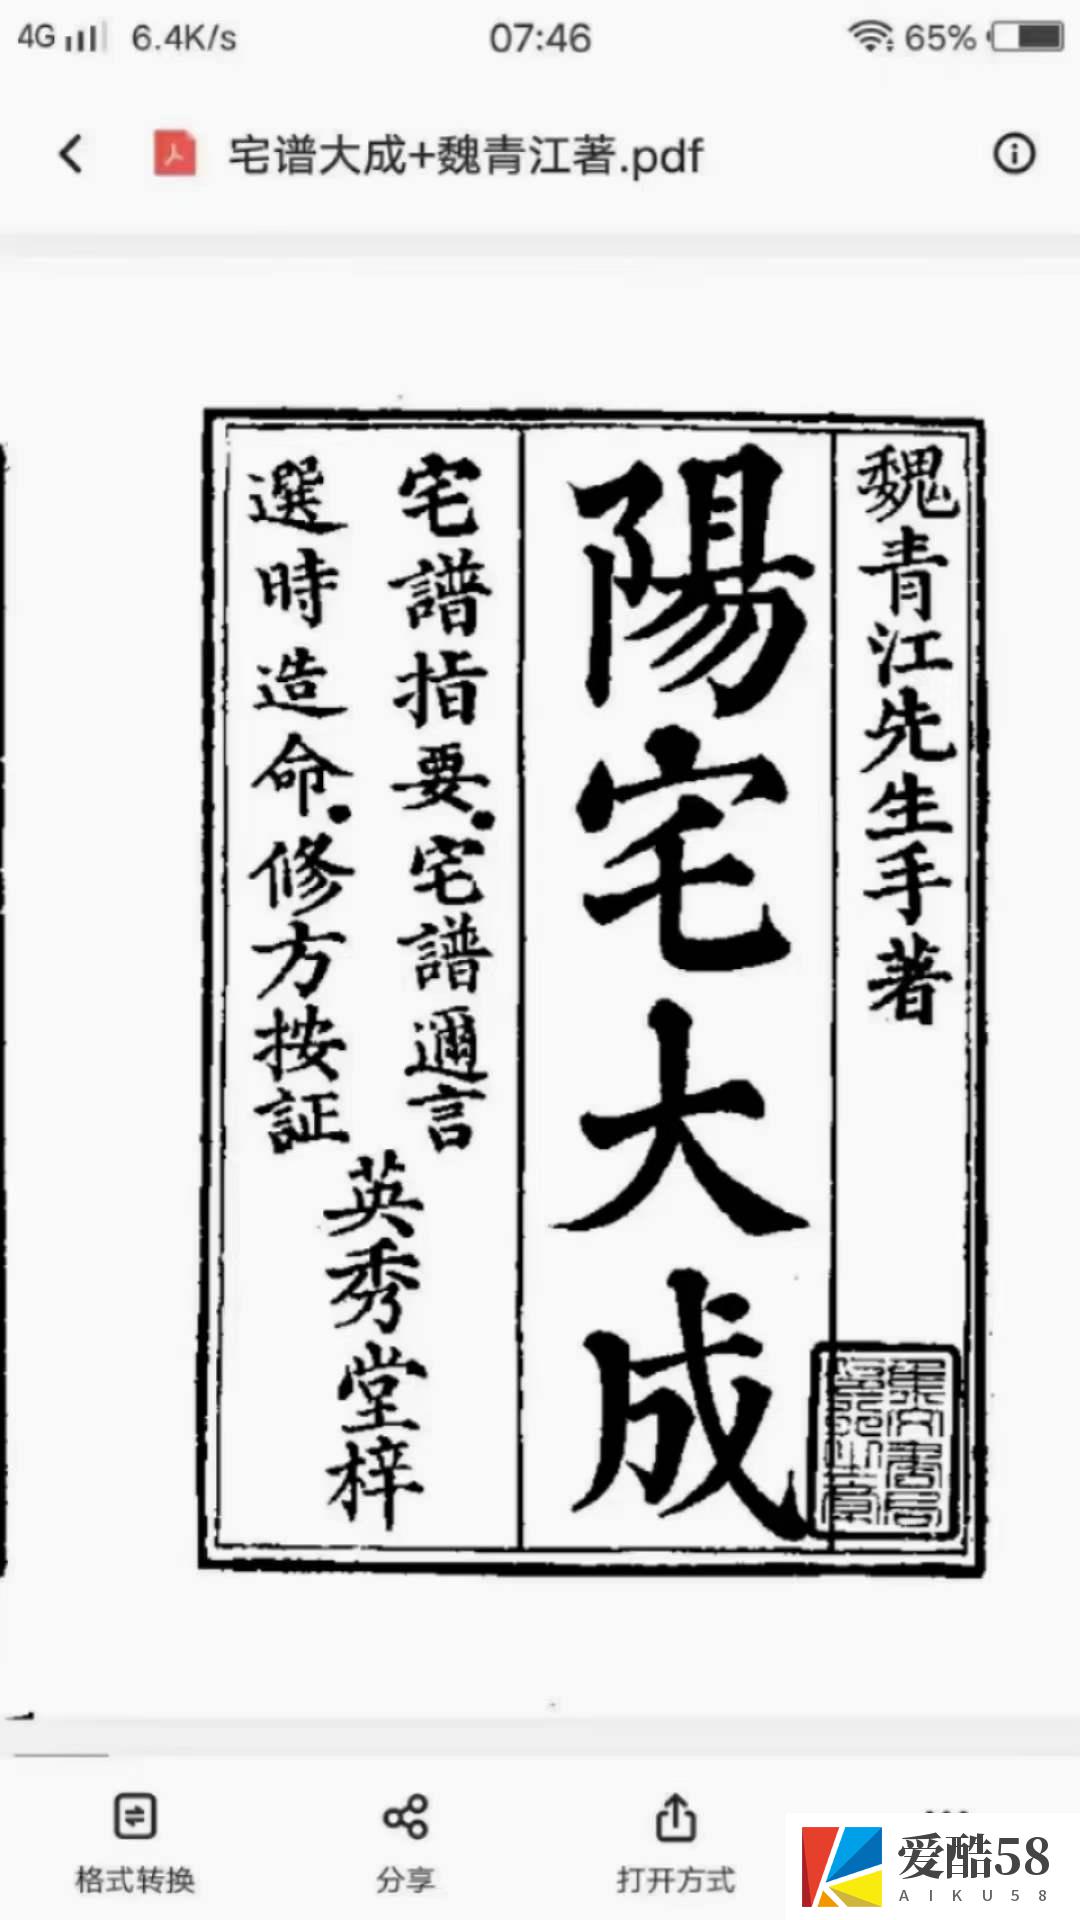 4G 6.4K/s 07:46 65%
宅谱大成+魏青江著.pdf
魏青江先生手著
陽宅大成
宅譜指要.宅譜邇言
選時造命.修方按証
英秀堂梓
格式转换 分享 打开方式
爱酷58
AIKU58